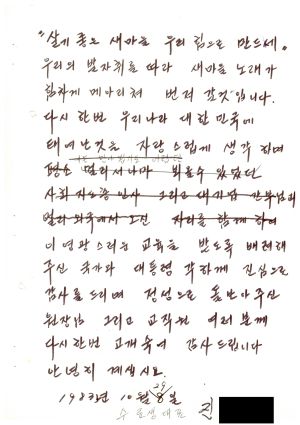 "살기 좋은 새마을 우리 힘으로 만드세"
우리의 발자취를 따라 새마을 노래가
힘차게 메아리쳐 번져 갈것입니다.
다시 한번 우리나라 대한민국에
태어난것을 자랑스럽게 생각 하며
평소 멀리서나마
사회 지도층 인사 그리고 대기업 간부님과
멀리 외국에서 오신 자리를 함께 하여
이 영광스러운 교육을 받도록 배려해
주신 국가와 대통령 각하께 진심으로
감사를 드리며 정성으로 돌보아 주신
원장님 그리고 교직원 여러분께
다시한번 고개숙여 감사드립니다
안녕히 계십시요.
10월 29일
수료생 대표